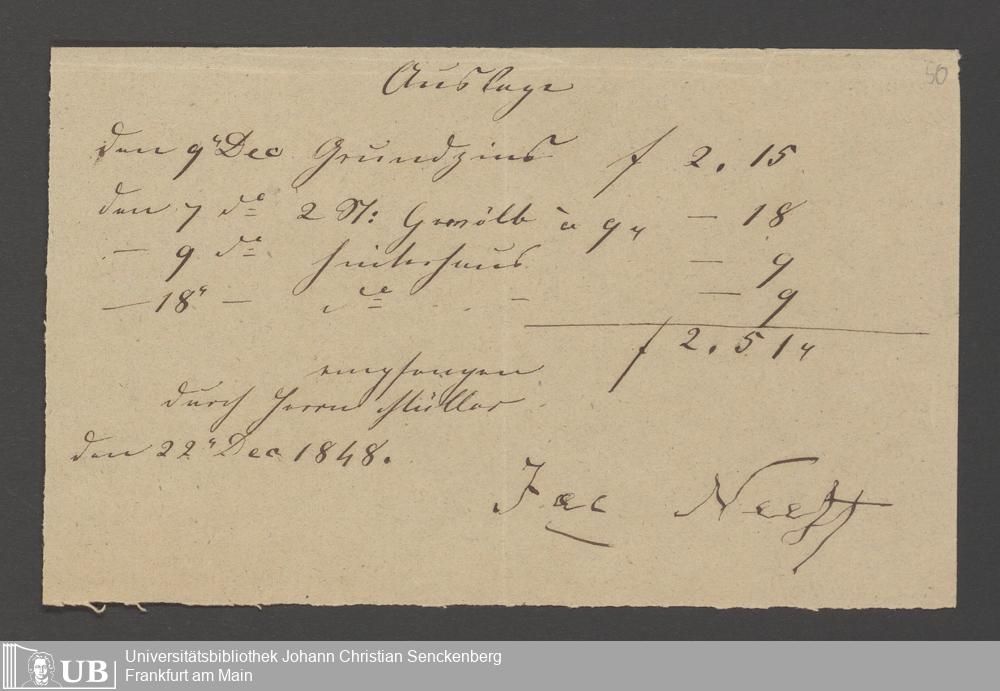 50
Auslage
den 9" Dec Grundzins f 2. 15
den 7 do 2 St: Gewölb à 9" — 18
— 9 do Hinterhaus — 9
— 18" — do — — 9
f 2. 51"
empfangen
durch Herrn Müller
den 22" Dec 1848.
Jac Neeff
UB Universitätsbibliothek Johann Christian Senckenberg
Frankfurt am Main